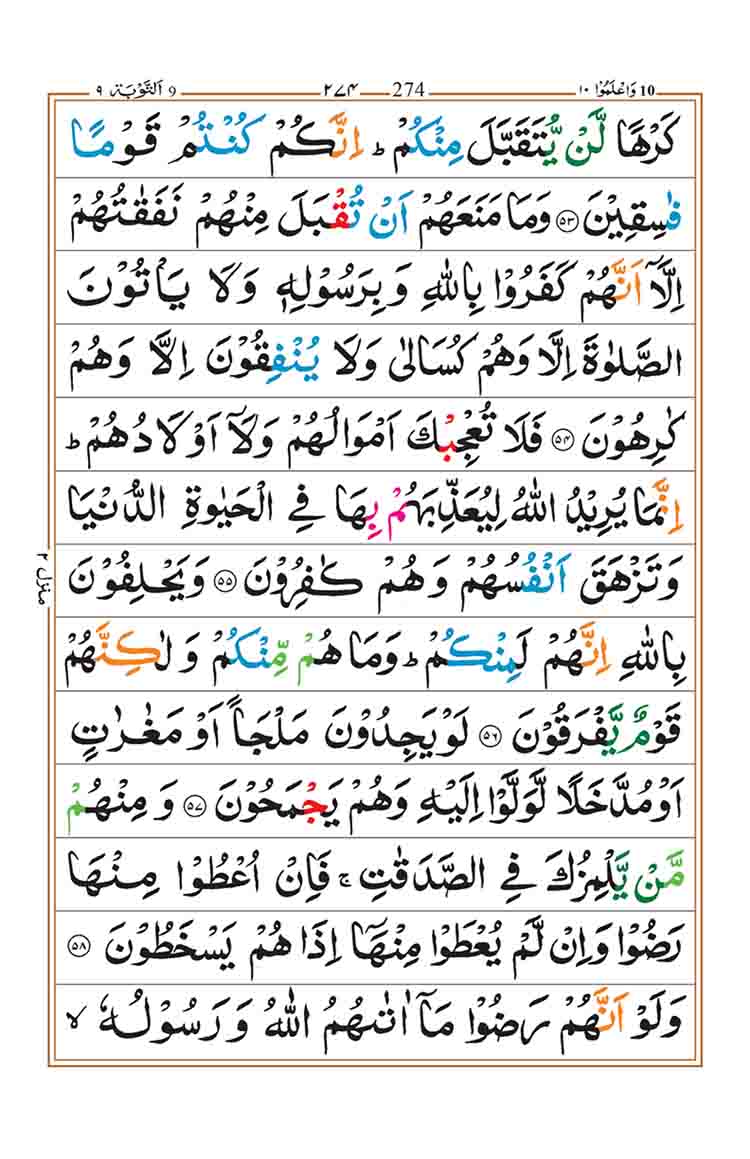 10 وَاعْلَمُوْا ١٠ 274 ۲۷۴ 9 اَلتَّوْبَة ٩
كَرْهًا لَّنْ يُّتَقَبَّلَ مِنْكُمْ ؕ اِنَّكُمْ كُنْتُمْ قَوْمًا
فٰسِقِيْنَ ﴿۵۳﴾ وَمَا مَنَعَهُمْ اَنْ تُقْبَلَ مِنْهُمْ نَفَقٰتُهُمْ
اِلَّاۤ اَنَّهُمْ كَفَرُوْا بِاللّٰهِ وَ بِرَسُوْلِهٖ وَلَا يَاْتُوْنَ
الصَّلٰوةَ اِلَّا وَهُمْ كُسَالٰى وَلَا يُنْفِقُوْنَ اِلَّا وَهُمْ
كٰرِهُوْنَ ﴿۵۴﴾ فَلَا تُعْجِبْكَ اَمْوَالُهُمْ وَلَاۤ اَوْلَادُهُمْ ؕ
اِنَّمَا يُرِيْدُ اللّٰهُ لِيُعَذِّبَهُمْ بِهَا فِي الْحَيٰوةِ الدُّنْيَا
وَتَزْهَقَ اَنْفُسُهُمْ وَهُمْ كٰفِرُوْنَ ﴿۵۵﴾ وَيَحْلِفُوْنَ
بِاللّٰهِ اِنَّهُمْ لَمِنْكُمْ ؕ وَمَا هُمْ مِّنْكُمْ وَلٰكِنَّهُمْ
قَوْمٌ يَّفْرَقُوْنَ ﴿۵۶﴾ لَوْ يَجِدُوْنَ مَلْجَاً اَوْ مَغٰرٰتٍ
اَوْ مُدَّخَلًا لَّوَلَّوْا اِلَيْهِ وَهُمْ يَجْمَحُوْنَ ﴿۵۷﴾ وَمِنْهُمْ
مَّنْ يَّلْمِزُكَ فِي الصَّدَقٰتِ ۚ فَاِنْ اُعْطُوْا مِنْهَا
رَضُوْا وَاِنْ لَّمْ يُعْطَوْا مِنْهَاۤ اِذَا هُمْ يَسْخَطُوْنَ ﴿۵۸﴾
وَلَوْ اَنَّهُمْ رَضُوْا مَاۤ اٰتٰىهُمُ اللّٰهُ وَرَسُوْلُهٗ ۙ
منزل ۲